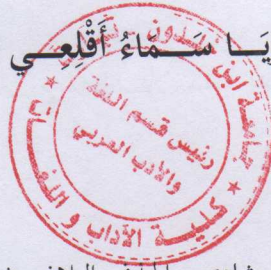 يَا سَمَاءُ أَقْلِعِي
جامعة ابن خلدون
رئيس قسم اللغة
والأدب العربي
كلية الآداب و اللغات